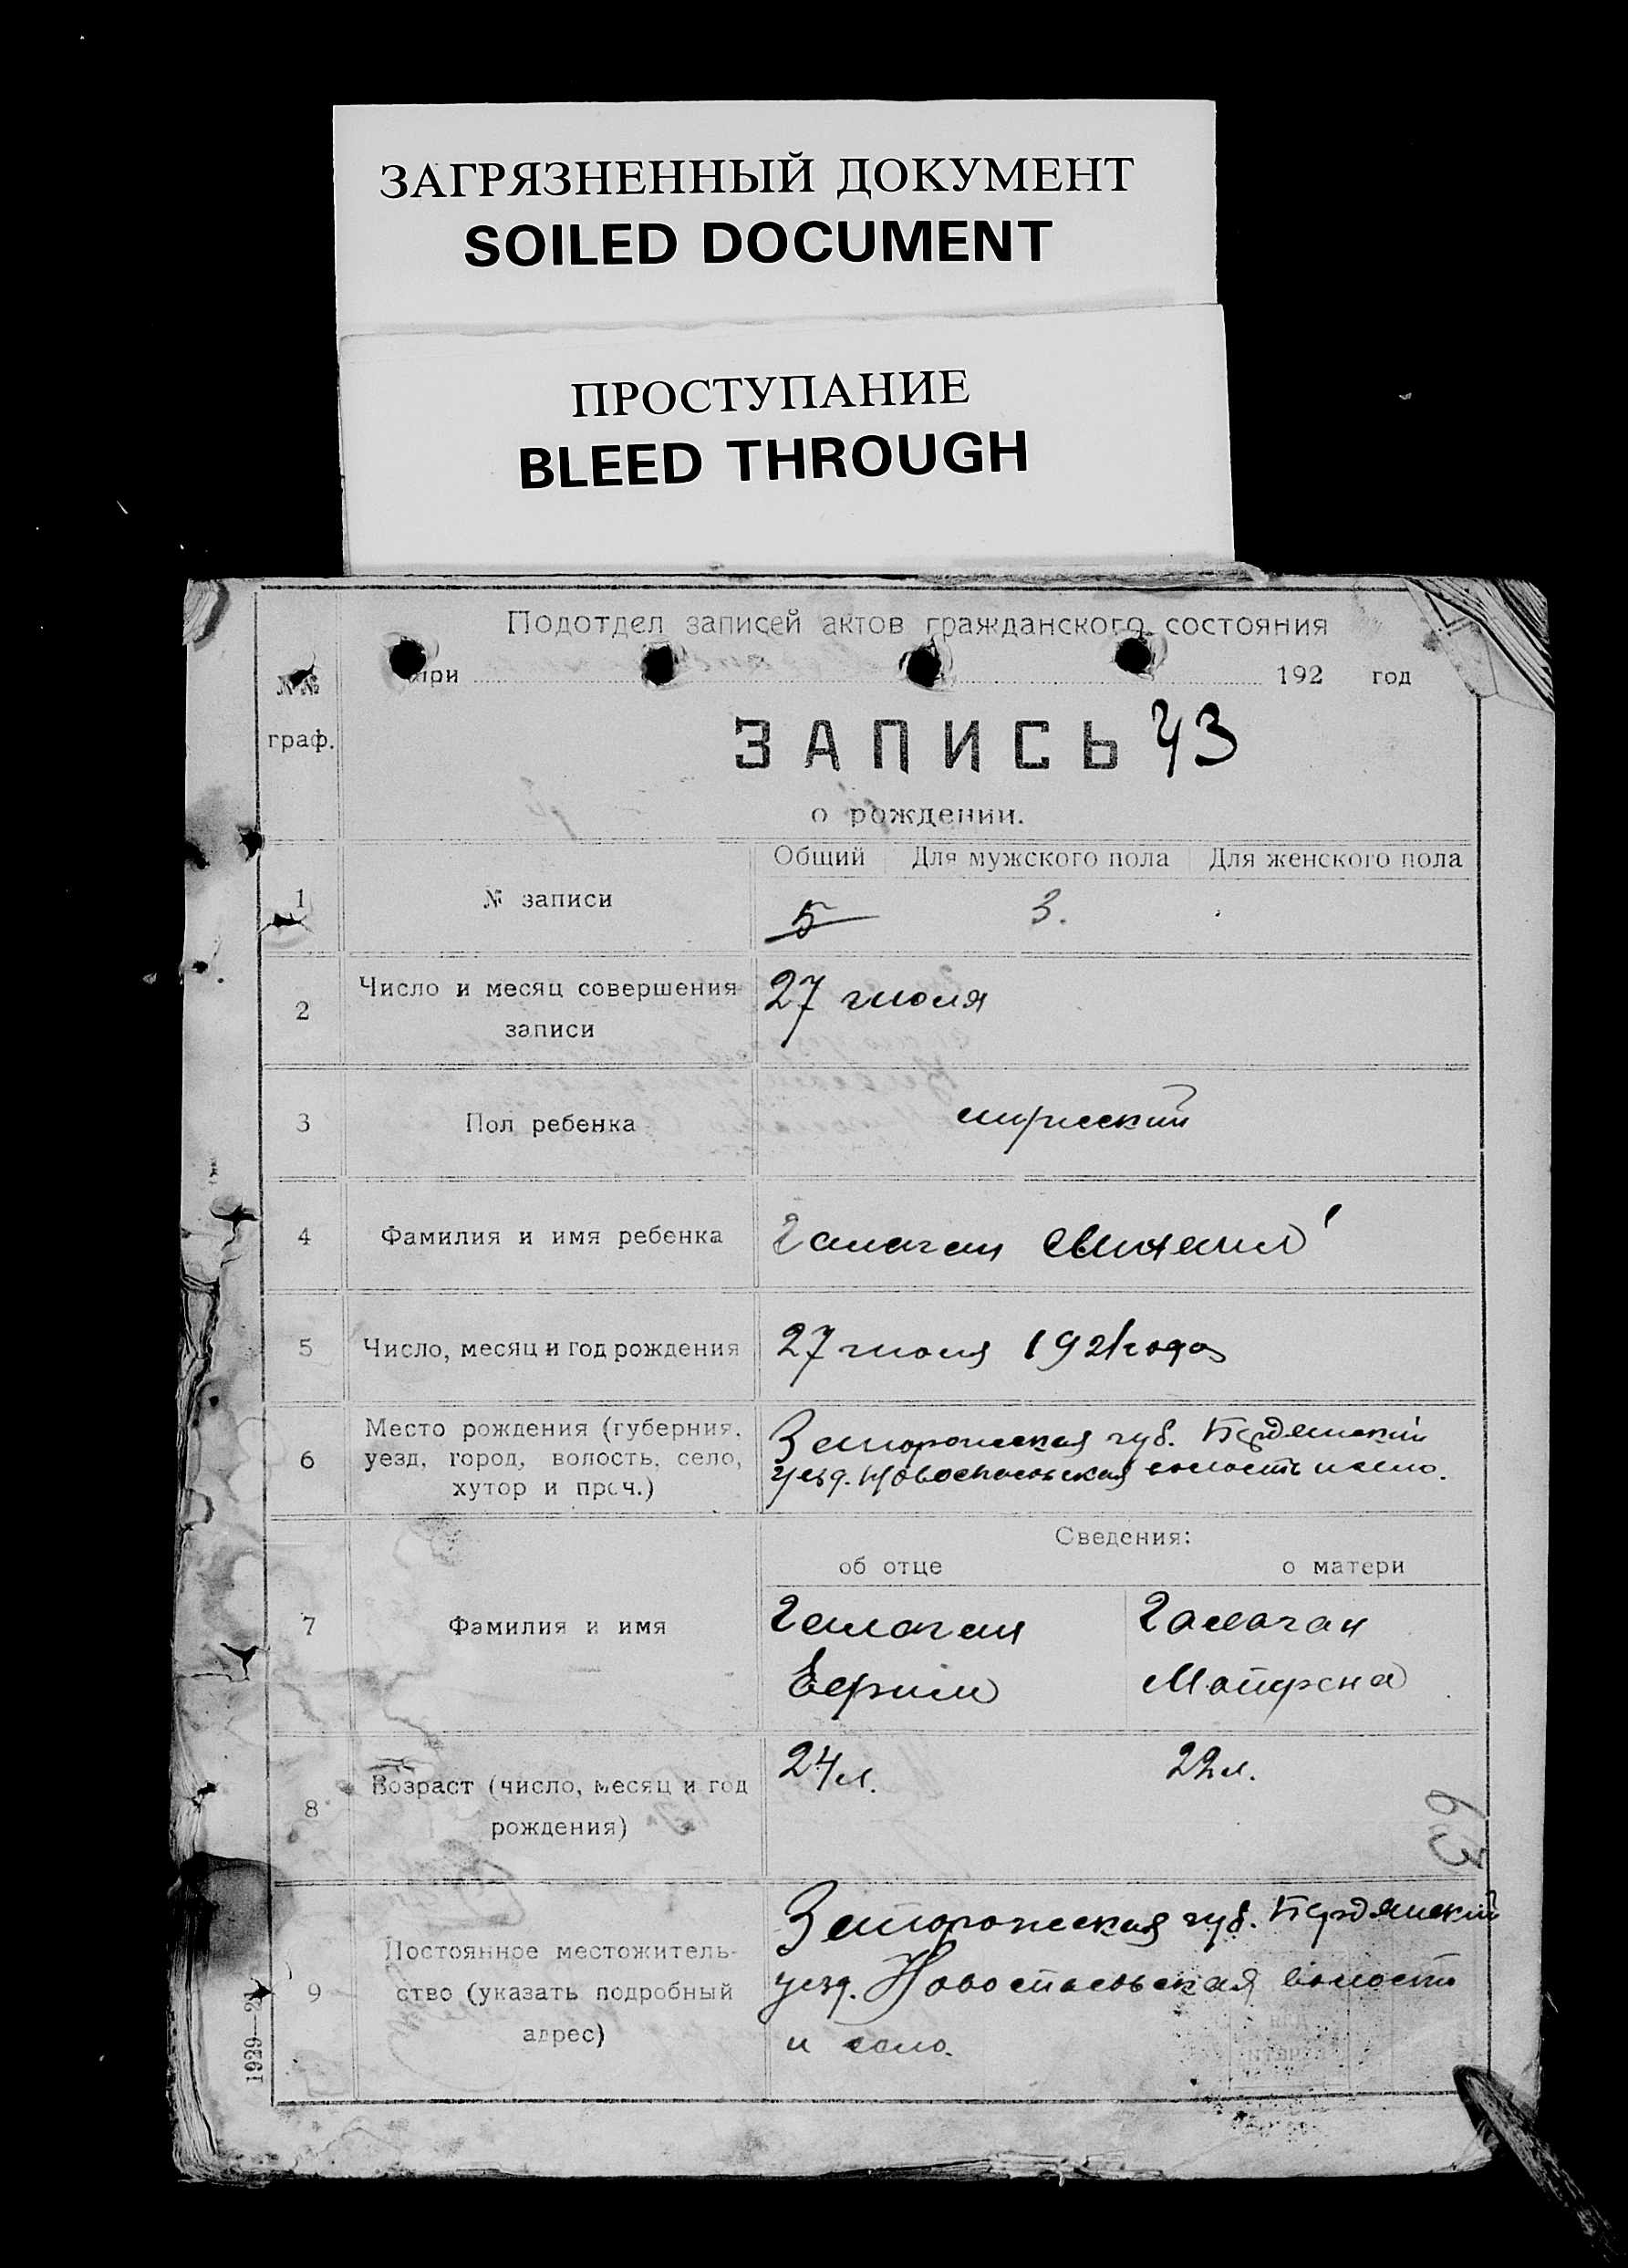 ЗАГРЯЗНЕННЫЙ ДОКУМЕНТ
SOILED DOCUMENT
ПРОСТУПАНИЕ
BLEED THROUGH
Подотдел записей актов гражданского состояния
№№ при 192 год
граф.
ЗАПИСЬ 43
о рождении.
Общий Для мужского пола Для женского пола
1 № записи 5 3.
2 Число и месяц совершения 27 июля
записи
3 Пол ребенка мужской
4 Фамилия и имя ребенка Галаган Михаил
5 Число, месяц и год рождения 27 июля 1921 года
6 Место рождения (губерния, Запорожская губ. Бердянский
уезд, город, волость, село, уезд. Новоспасовская волость и село.
хутор и проч.)
Сведения:
об отце о матери
7 Фамилия и имя Галаган Галаган
Ефим
24 л. 22 л.
8 Возраст (число, месяц и год
рождения)
63
9 Постоянное местожитель- Запорожская губ. Бердянский
ство (указать подробный уезд. Новоспасовская волость
адрес) и село.
1929—21